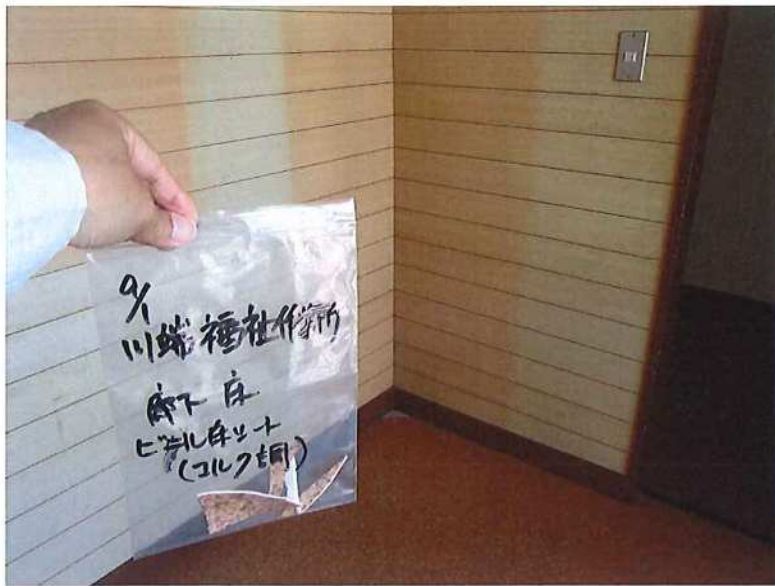 9/1
川端福祉作業所
廊下 床
ビニル床シート
(コルク柄)